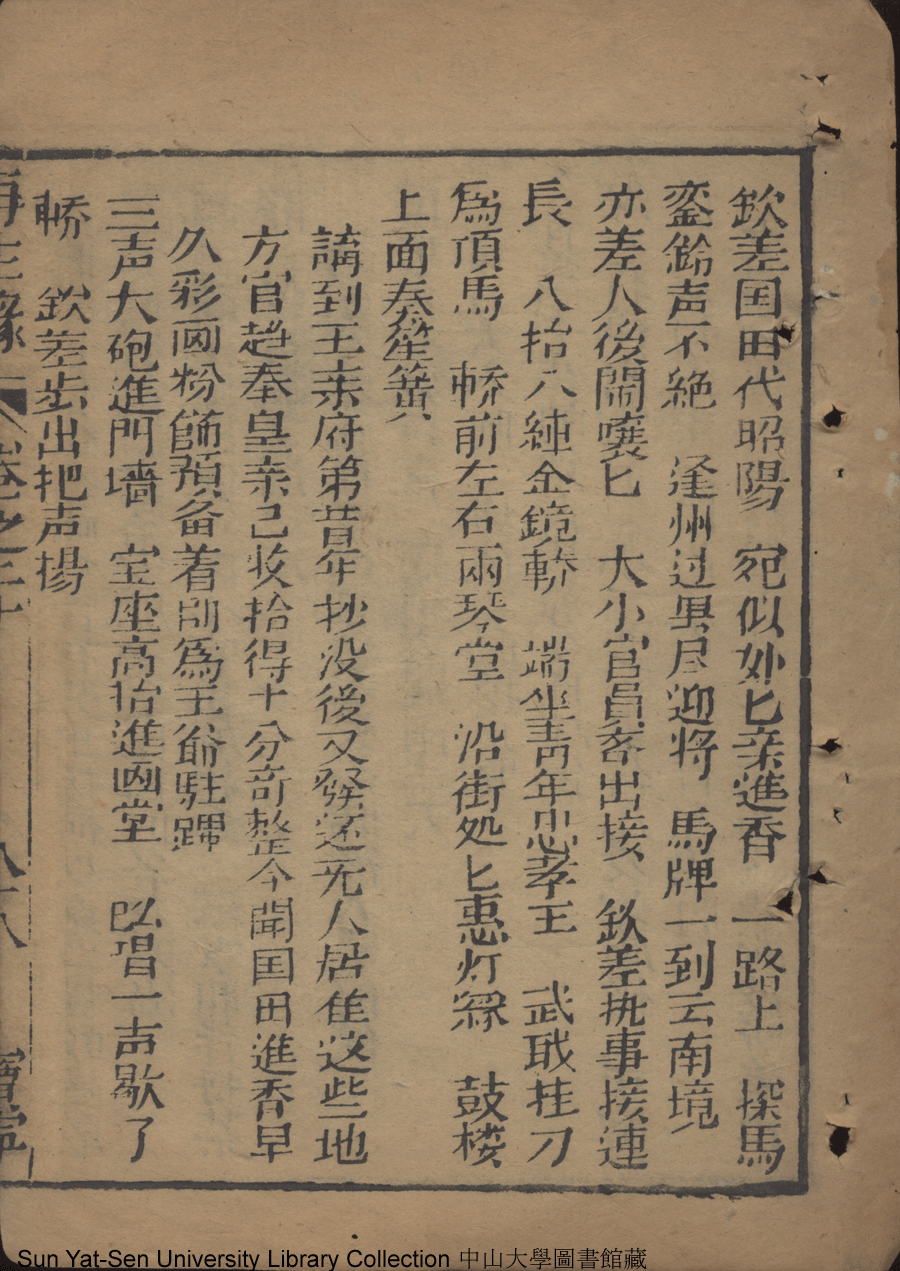 欽差国田代昭陽　宛似妙匕亲進香　一路上　探馬
銮鈴声不絶　逢州过县尽迎将　馬牌一到云南境
亦差人後閙嚷匕　大小官員客出接　欽差执事接連
長　八抬八綽金鏡轎　端坐青年忠孝王　武职挂刀
為頂馬　轎前左右兩琴堂　沿街処匕惠灯綵　鼓楼
上面奏笙簧
講到王亲府第昔年抄没後又發还无人居住这些地
方官趋奉皇亲己收拾得十分斉整今聞国田進香早
久彩画粉飾預备着前為王爺駐蹕
三声大砲進門墙　宝座高抬進画堂　唱一声歇了
轎　欽差步出把声揚
再生緣　卷之三十　八十八　會堂
Sun Yat-Sen University Library Collection 中山大學圖書館藏